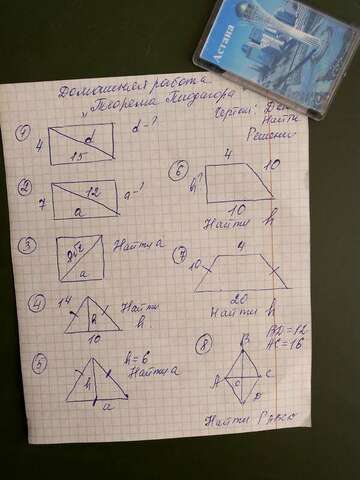 Астана
Домашняя работа
"Теорема Пифагора"
Чертёж
Найти
Решение
1
4
d
15
d-?
2
7
12
a
a-?
3
a
Найти a
4
14
h
10
Найти
h
5
h
a
h=6
Найти a
6
4
10
h?
10
Найти h
7
4
10
20
Найти h
8
B
A
O
C
D
AC=16
Найти